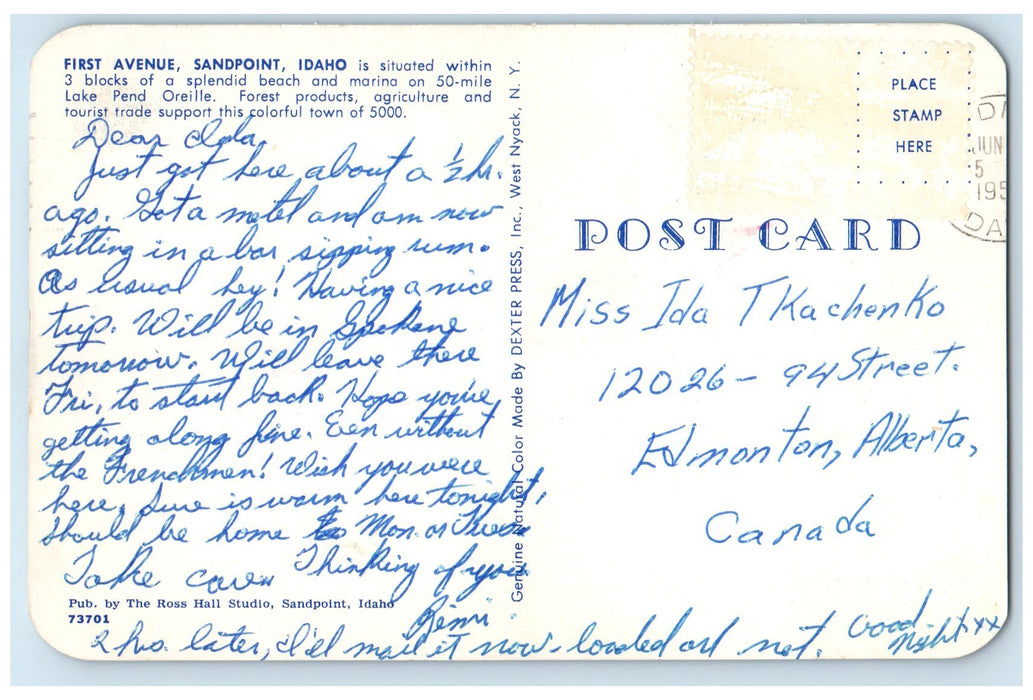 FIRST AVENUE, SANDPOINT, IDAHO is situated within
3 blocks of a splendid beach and marina on 50-mile
Lake Pend Oreille. Forest products, agriculture and
tourist trade support this colorful town of 5000.
Dear Ida,
Just got here about a ½ hr.
ago. Got a motel and am now
sitting in a bar sipping rum.
As usual hey! Having a nice
trip. Will be in Spokane
tomorrow. Will leave there
Fri, to start back. Hope you're
getting along fine. Even without
the Frenchmen! Wish you were
here. Sure is warm here tonight,
Should be home Mon. or Tues
Take care Thinking of you
Remi
Pub. by The Ross Hall Studio, Sandpoint, Idaho
73701
2 hrs. later, I'd mail it now - loaded or not. Good
Night xx
Genuine Natural Color Made By DEXTER PRESS, Inc., West Nyack, N. Y.
PLACE
STAMP
HERE
JUN
5
195
POST CARD
Miss Ida TKachenKo
12026 - 94 Street.
Edmonton, Alberta,
Canada